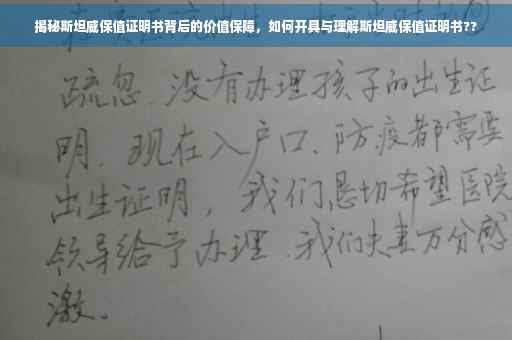 揭秘斯坦威保值证明书背后的价值保障，如何开具与理解斯坦威保值证明书??
疏忽、没有办理孩子的出生证
明. 现在入户口、防疫都需要
出生证明，我们恳切希望医院
领导给予办理、我们夫妻万分感
激。